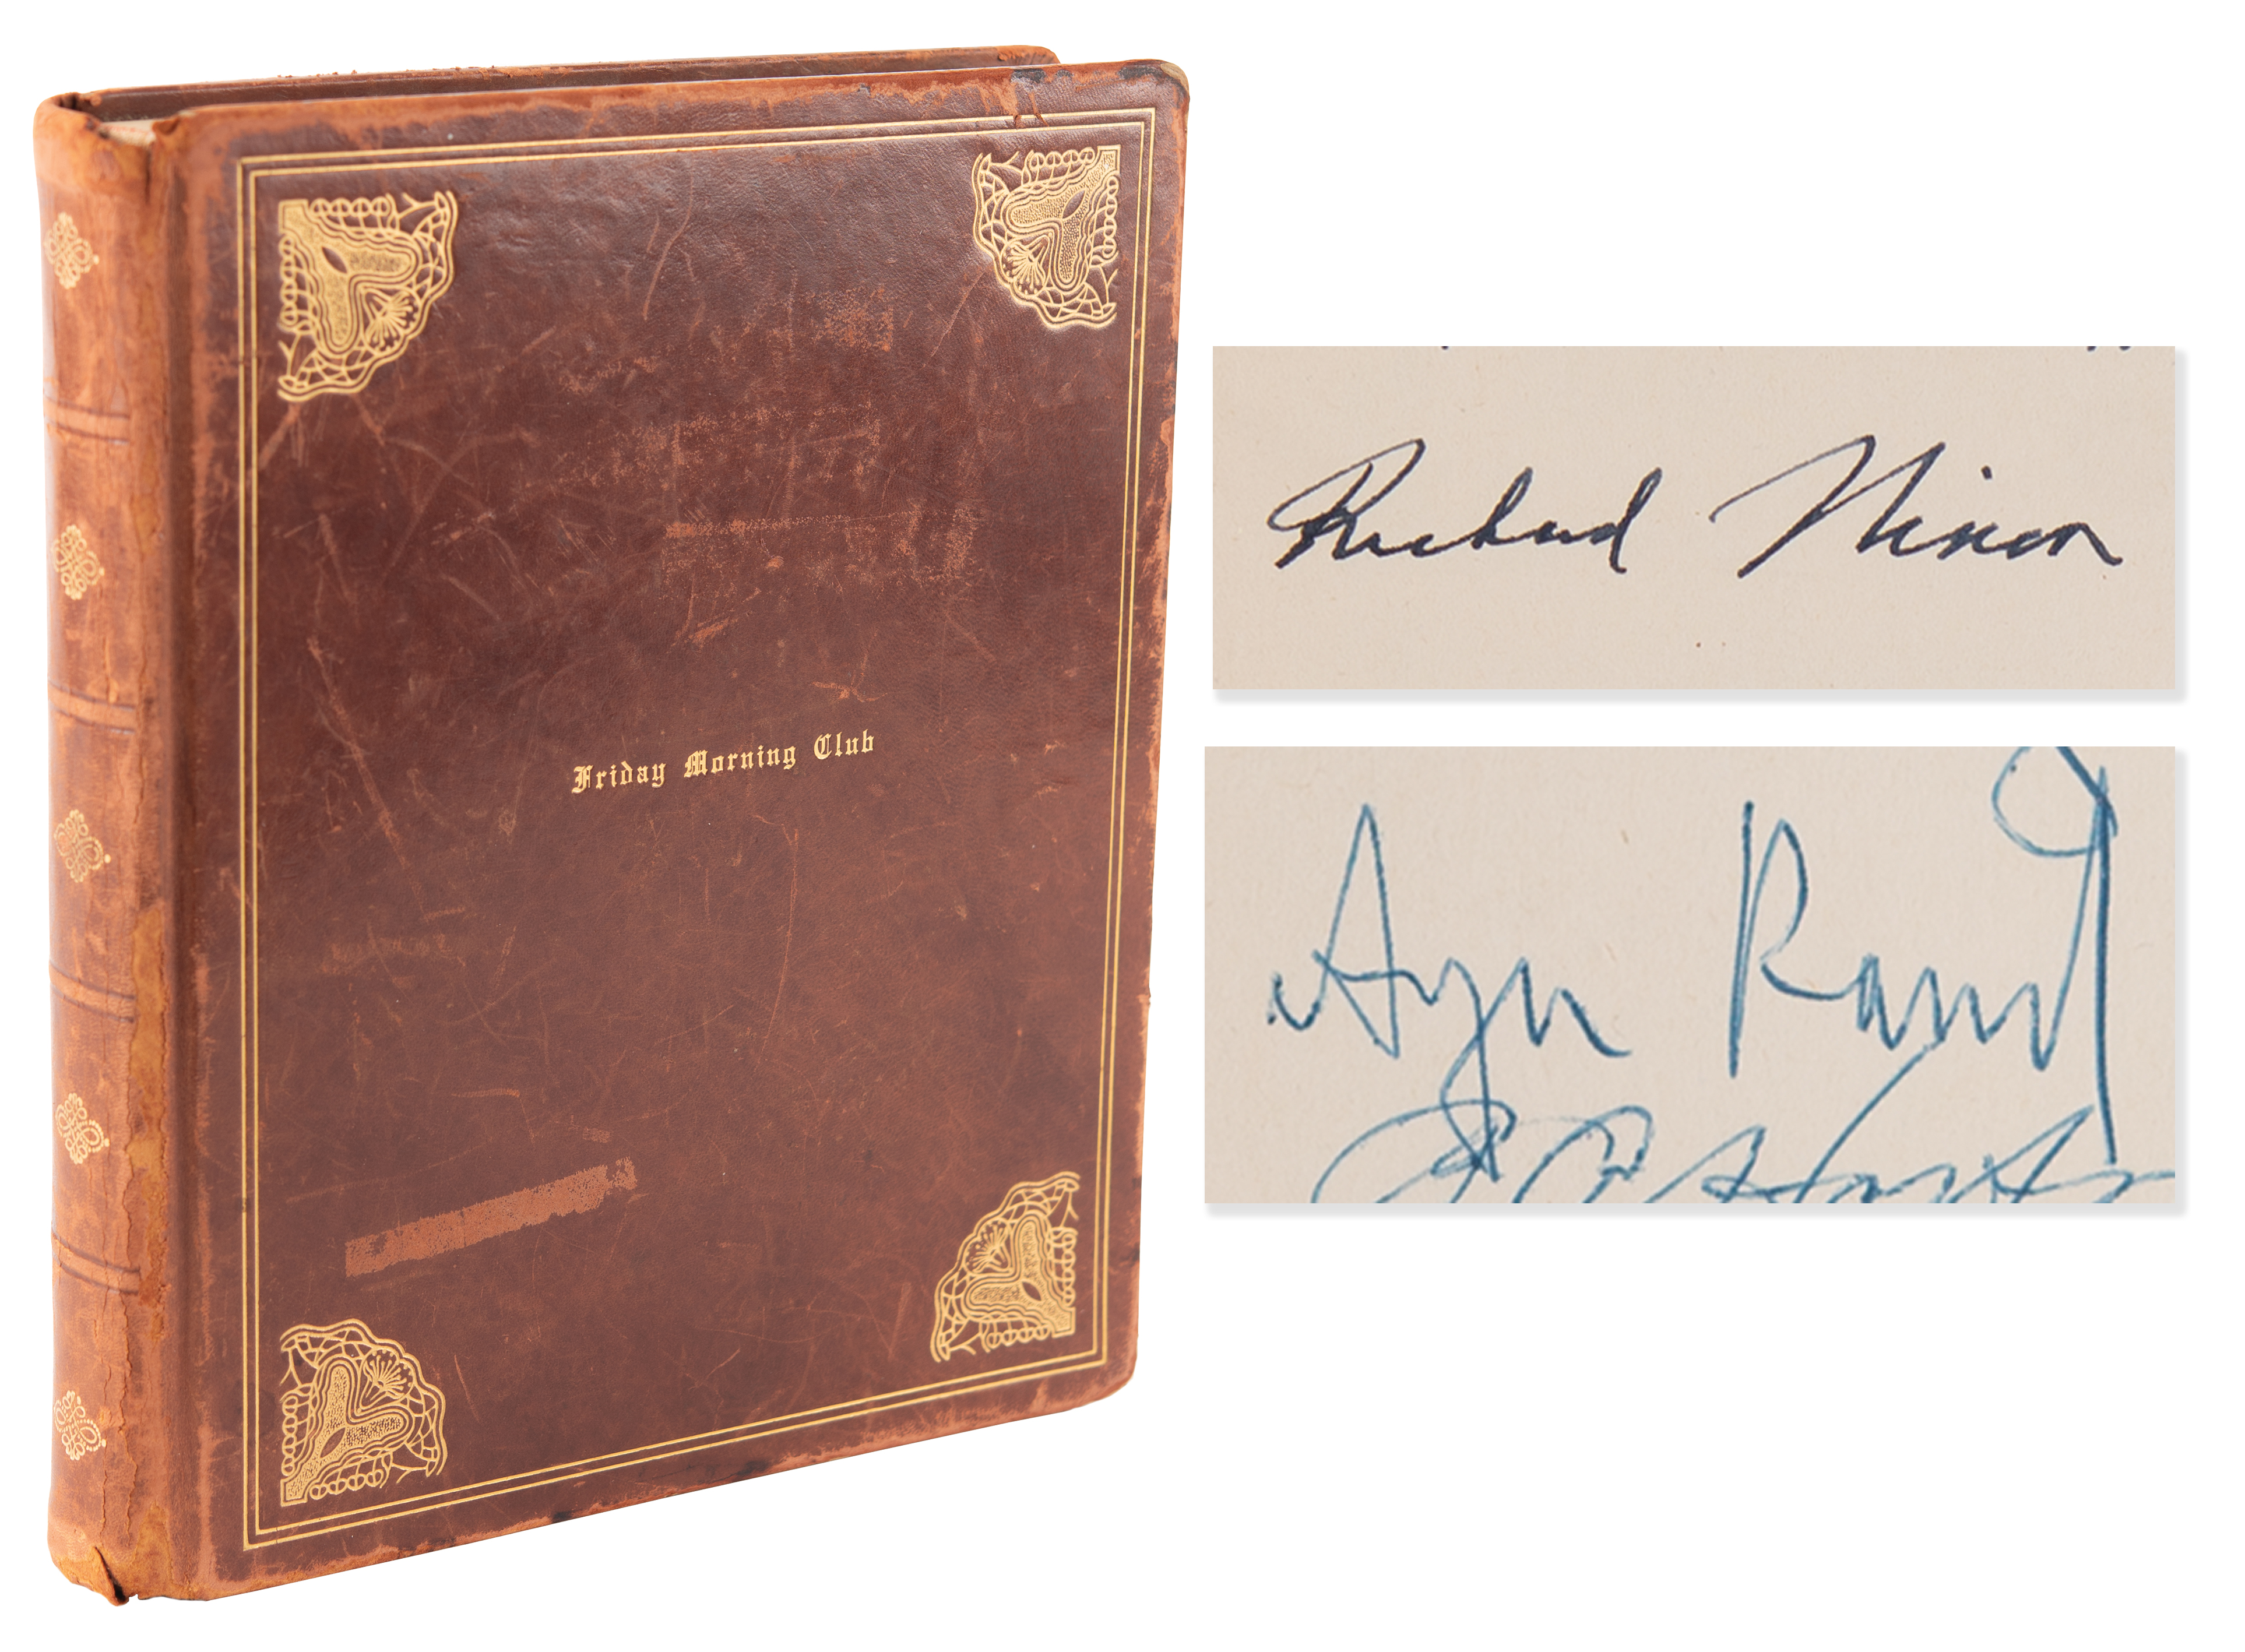 Friday Morning Club
Richard Nixon
Ayn Rand